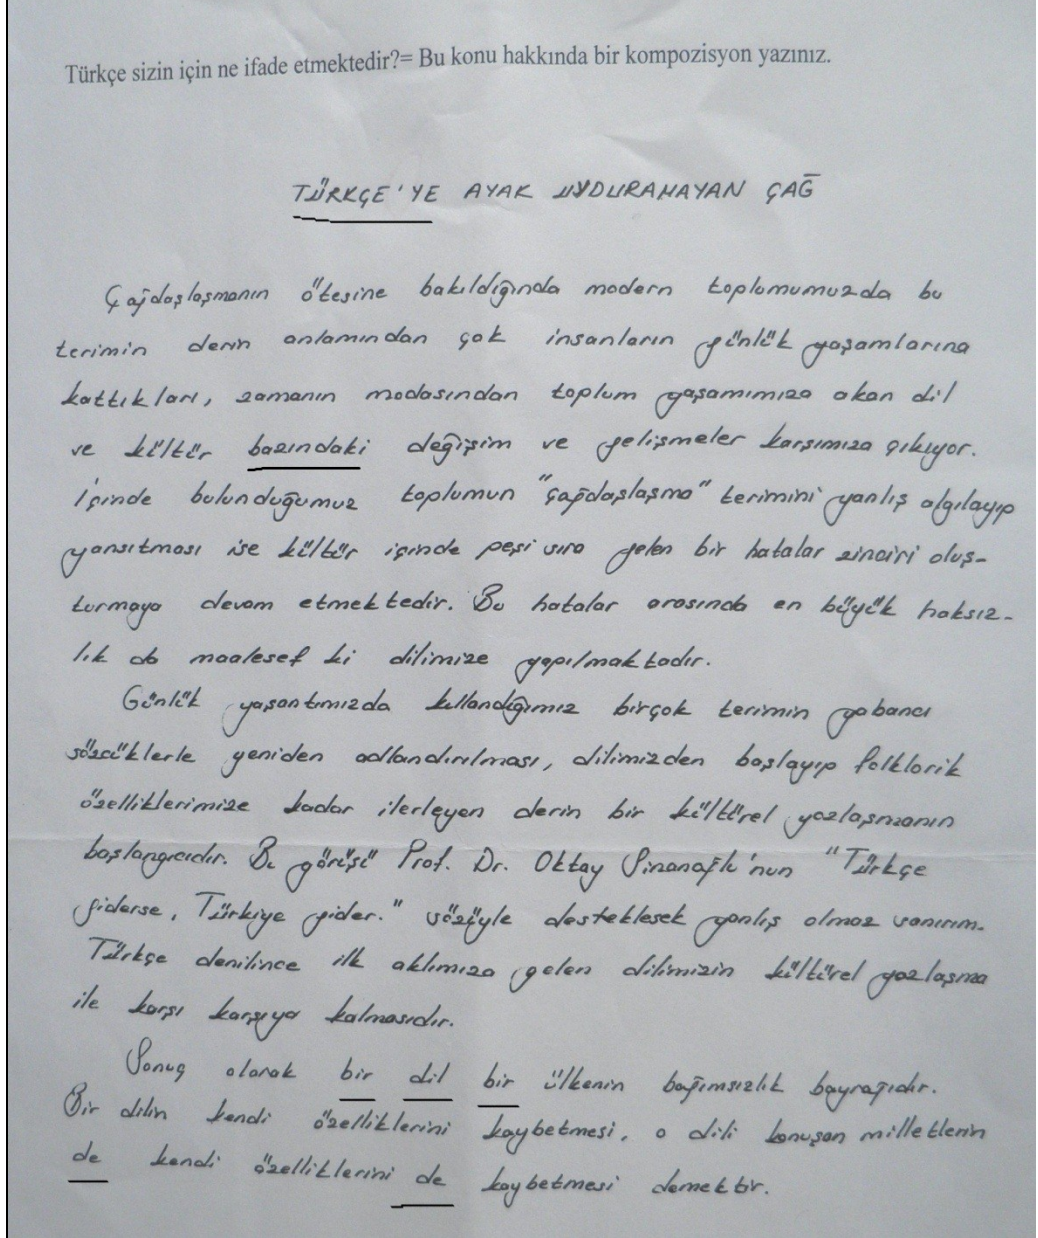 Türkçe sizin için ne ifade etmektedir?= Bu konu hakkında bir kompozisyon yazınız.
TÜRKÇE'YE AYAK UYDURAMAYAN ÇAĞ
Çağdaşlaşmanın ötesine bakıldığında modern toplumumuzda bu
terimin derin anlamından çok insanların günlük yaşamlarına
kattıkları, zamanın modasından toplum yaşamımıza akan dil
ve kültür bazındaki değişim ve gelişmeler karşımıza çıkıyor.
İçinde bulunduğumuz toplumun "çağdaşlaşma" terimini yanlış algılayıp
yansıtması ise kültür içinde peşi sıra gelen bir hatalar zinciri oluş-
turmaya devam etmektedir. Bu hatalar arasında en büyük haksız-
lık da maalesef ki dilimize yapılmaktadır.
Günlük yaşantımızda kullandığımız birçok terimin yabancı
sözcüklerle yeniden adlandırılması, dilimizden başlayıp folklorik
özelliklerimize kadar ilerleyen derin bir kültürel yozlaşmanın
başlangıcıdır. Bu görüşü Prof. Dr. Oktay Sinanoğlu'nun "Türkçe
giderse, Türkiye gider." sözüyle desteklesek yanlış olmaz sanırım.
Türkçe denilince ilk aklımıza gelen dilimizin kültürel yozlaşma
ile karşı karşıya kalmasıdır.
Sonuç olarak bir dil bir ülkenin bağımsızlık bayrağıdır.
Bir dilin kendi özelliklerini kaybetmesi, o dili konuşan milletlerin
de kendi özelliklerini de kaybetmesi demektir.